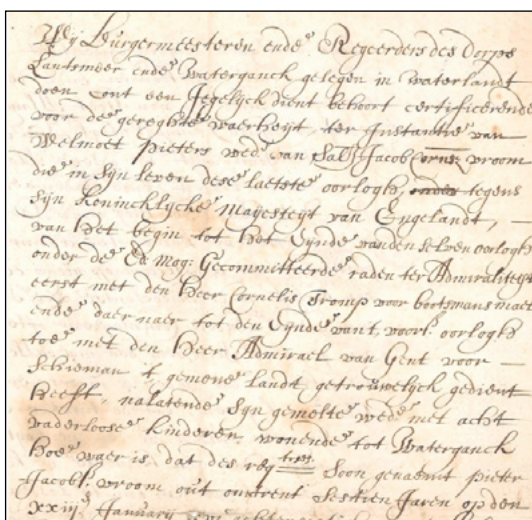 Wij Burgermeesteren ende Regeerders des Dorps
Lantsmeer ende Waterganck gelegen in waterlandt
doen cont een Jegelijck dient behoort certificerende
voor de gerechte waerheijt, ter Instantie van
Welmoet Pieters wed. van Sal: Jacob Cornsz vroom
die in sijn leven dese laetste oorlogh, tegens
sijn Konincklijcke Mayesteyt van Engelandt, —
van het begin tot het Eijnde vanden selven oorlogh
onder de Ed Mog: Gecommitteerde raden ter Admiraliteijt
eerst met den Heer Cornelis Tromp voor bootsmans maet
ende daer naer tot den Eijnde vant, voors. oorlogh
toe met den Heer Admirael van Gent voor —
Schieman t, gemene landt, getrouwelijck gedient
heeft, nalatende sijn gemelte wede met acht
vaderloose kinderen, wonende tot Waterganck
hoe waer is, dat des reqtres Soon genaemt Pieter
Jacobs. vroom out omtrent Sestien Jaren op den
xxiij Januarij